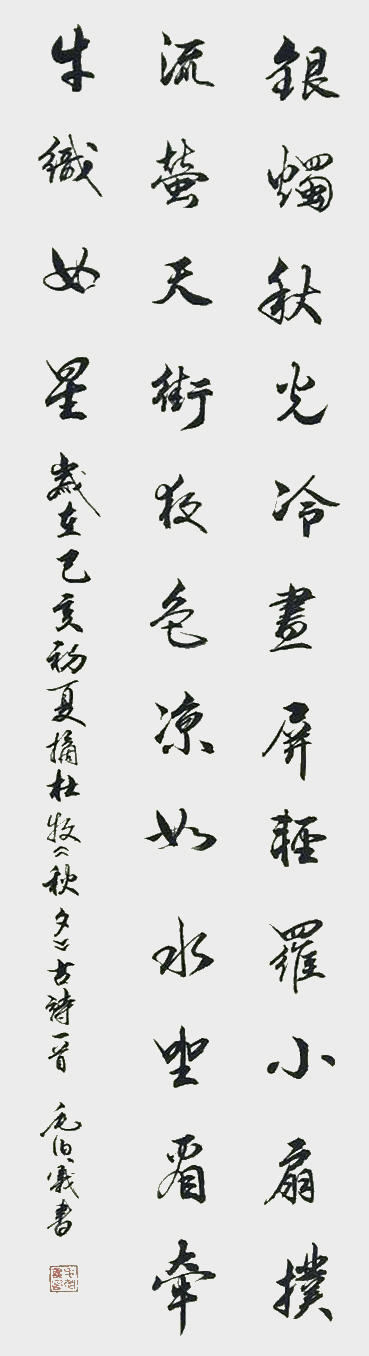 銀燭秋光冷畫屏輕羅小扇撲
流螢天街夜色凉如水坐看牽
牛織女星歲在己亥初夏摘杜牧《秋夕》古詩一首 毛伯義書